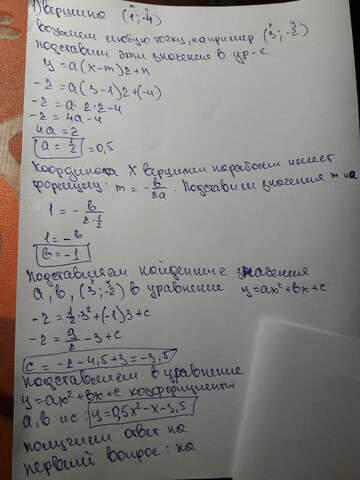 вершина (1; -4)
m n
возьмем любую точку, например (3; -2)
x y
подставим эти значение в ур-е
y = a(x-m)2+n
-2 = a(3-1)2+(-4)
-2 = a·2·2-4
-2 = 4a-4
4a=2
a = 1/2 = 0,5
Координата x вершины параболы имеет
формулу: m = -в/2a. Подставим значения m и a
1 = -в/(2·1/2)
1 = -в
в = -1
подставляем найденные значения
a, в, (3; -2) в уравнение y=ax²+вx+c
x y
-2 = 1/2·3²+(-1)·3+c
-2 = 9/2 -3+c
c = -2-4,5+3=-3,5
подставляем в уравнение
y=ax²+вx+c коэффициенты
a, в и c: y=0,5x²-x-3,5
получили ответ на
первый вопрос: на